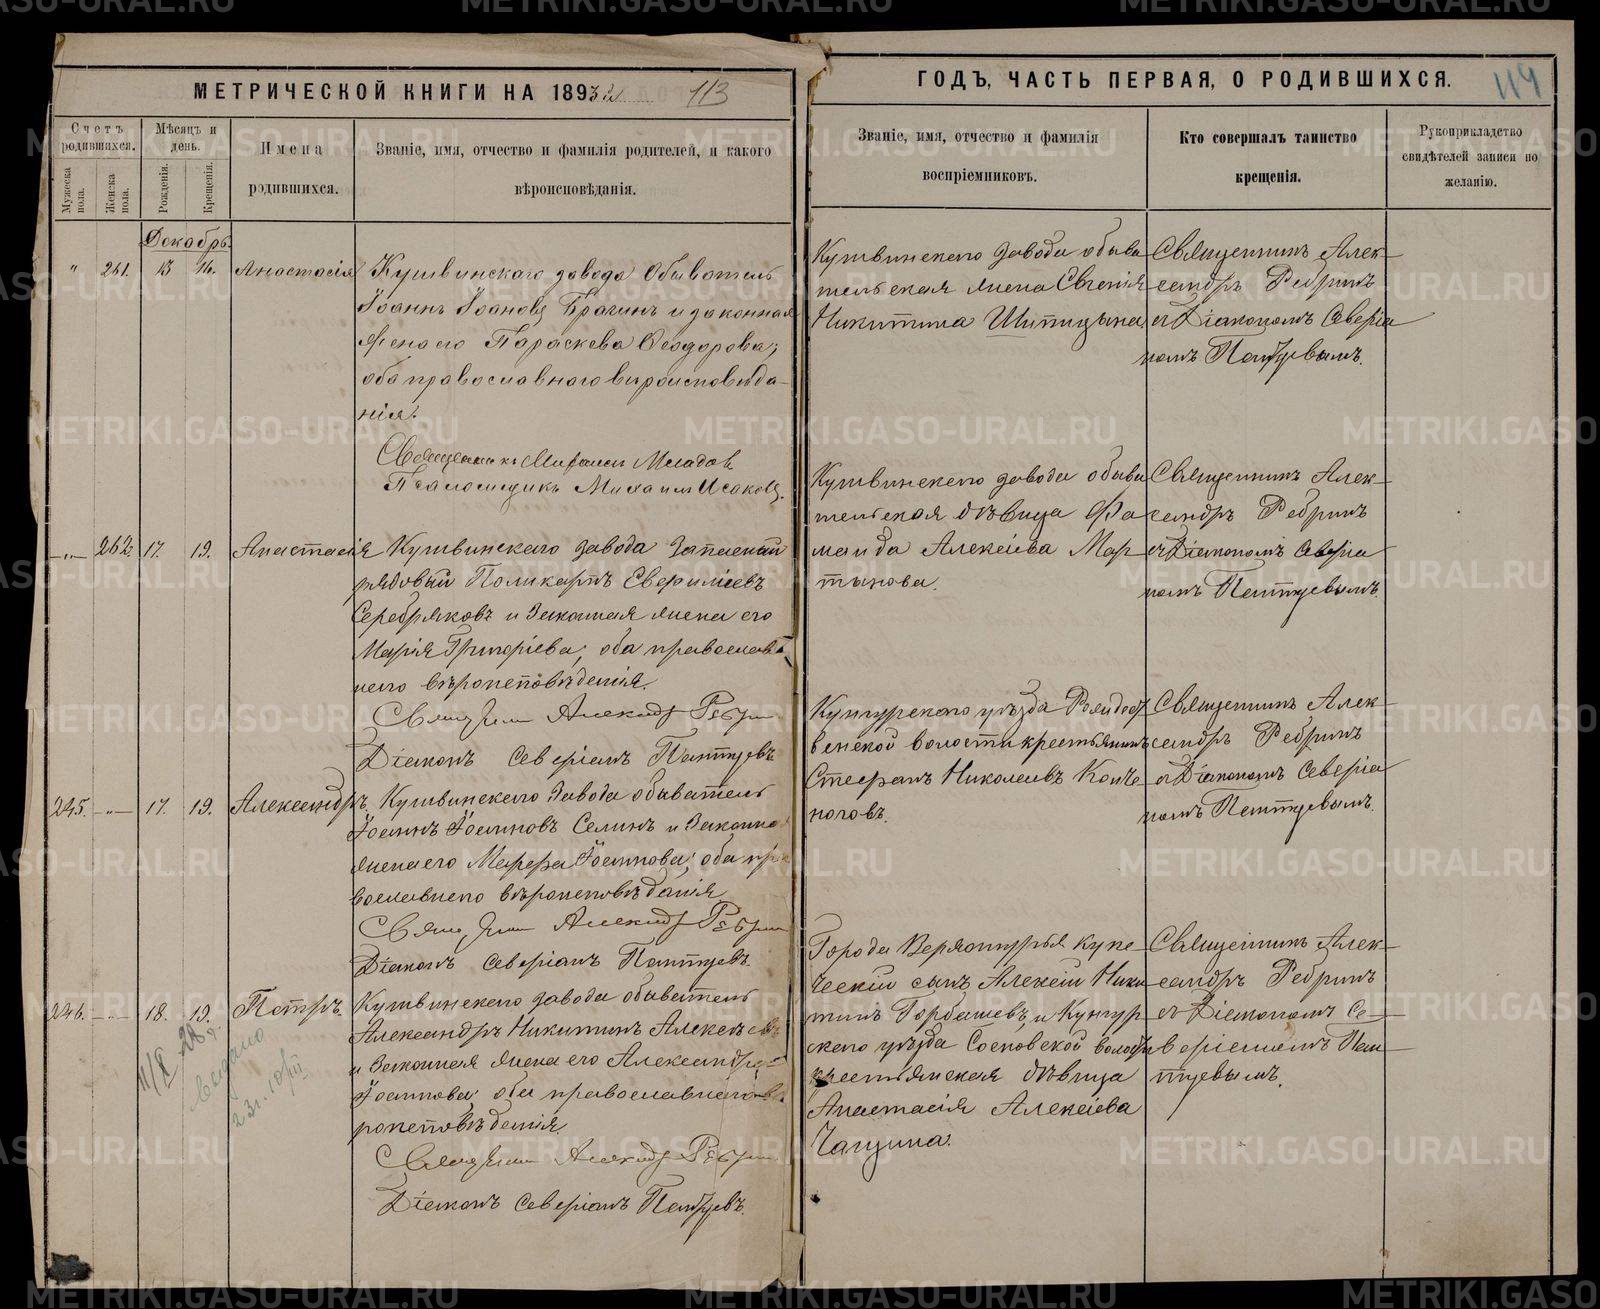 МЕТРИЧЕСКОЙ КНИГИ НА 1893 113
Счетъ родившихся.
Мѣсяцъ и день.
Мужеска пола.
Женска пола.
Рожденія.
Крещенія.
Имена родившихся.
Званіе, имя, отчество и фамилія родителей, и какого
вѣроисповѣданія.
Декабрь.
" 261. 13 14. Анастасія Кушвинскаго завода обыватель
Іоаннъ Іоановъ Брагинъ и законная
жена его Параскева Ѳеодорова;
оба православнаго вѣроисповѣда-
нія.
Священникъ Михаилъ
Псаломщикъ Михаилъ Исаковъ.
-"- 262. 17. 19. Анастасія Кушвинскаго завода запасный
рядовый Поликарпъ
Серебряковъ и законная жена его
Марія Григоріева, оба православ-
наго вѣроисповѣданія.
Священникъ Александръ Ребринъ
Діаконъ Северіанъ
245. -"- 17. 19. Александръ. Кушвинскаго завода обыватель
Іоаннъ Іоанновъ Селинъ и законная
жена его Марѳа Іоаннова; оба пра
вославнаго вѣроисповѣданія
Священникъ Александръ Ребринъ
Діаконъ Северіанъ
246. -"- 18. 19. Петръ. Кушвинскаго завода обыватель
Александръ Никитинъ Алексѣевъ
и законная жена его Александра
Іоаннова; оба православнаго вѣ
роисповѣданія.
Священникъ Александръ Ребринъ
Діаконъ Северіанъ
11/X 28 г.
выдано
23г. 10/III
ГОДЪ, ЧАСТЬ ПЕРВАЯ, О РОДИВШИХСЯ. 114
Званіе, имя, отчество и фамилія
воспріемниковъ.
Кто совершалъ таинство
крещенія.
Рукоприкладство
свидѣтелей записи по
желанію.
Кушвинскаго завода обыва
тельская жена Евгенія
Никитина Шипицына
Священникъ Алек-
сандръ Ребринъ
съ Діакономъ Северіа
номъ
Кушвинскаго завода обыва
тельская дѣвица Фа
маида Алексѣева Мар
тынова.
Священникъ Алек-
сандръ Ребринъ
съ Діакономъ Северіа
номъ
Кунгурскаго уѣзда Рождест
венской волости крестьянинъ
Стефанъ Николаевъ Копче
ноговъ.
Священникъ Алек-
сандръ Ребринъ
съ Діакономъ Северіа
номъ
Города Верхотурья купе-
ческій сынъ Алексій Ники
тинъ Горбашевъ, и Кунгур
скаго уѣзда Сосновской волости
крестьянская дѣвица
Анастасія Алексѣева
Чагина.
Священникъ Алек-
сандръ Ребринъ
съ Діакономъ Се-
веріаномъ
METRIKI.GASO-URAL.RU